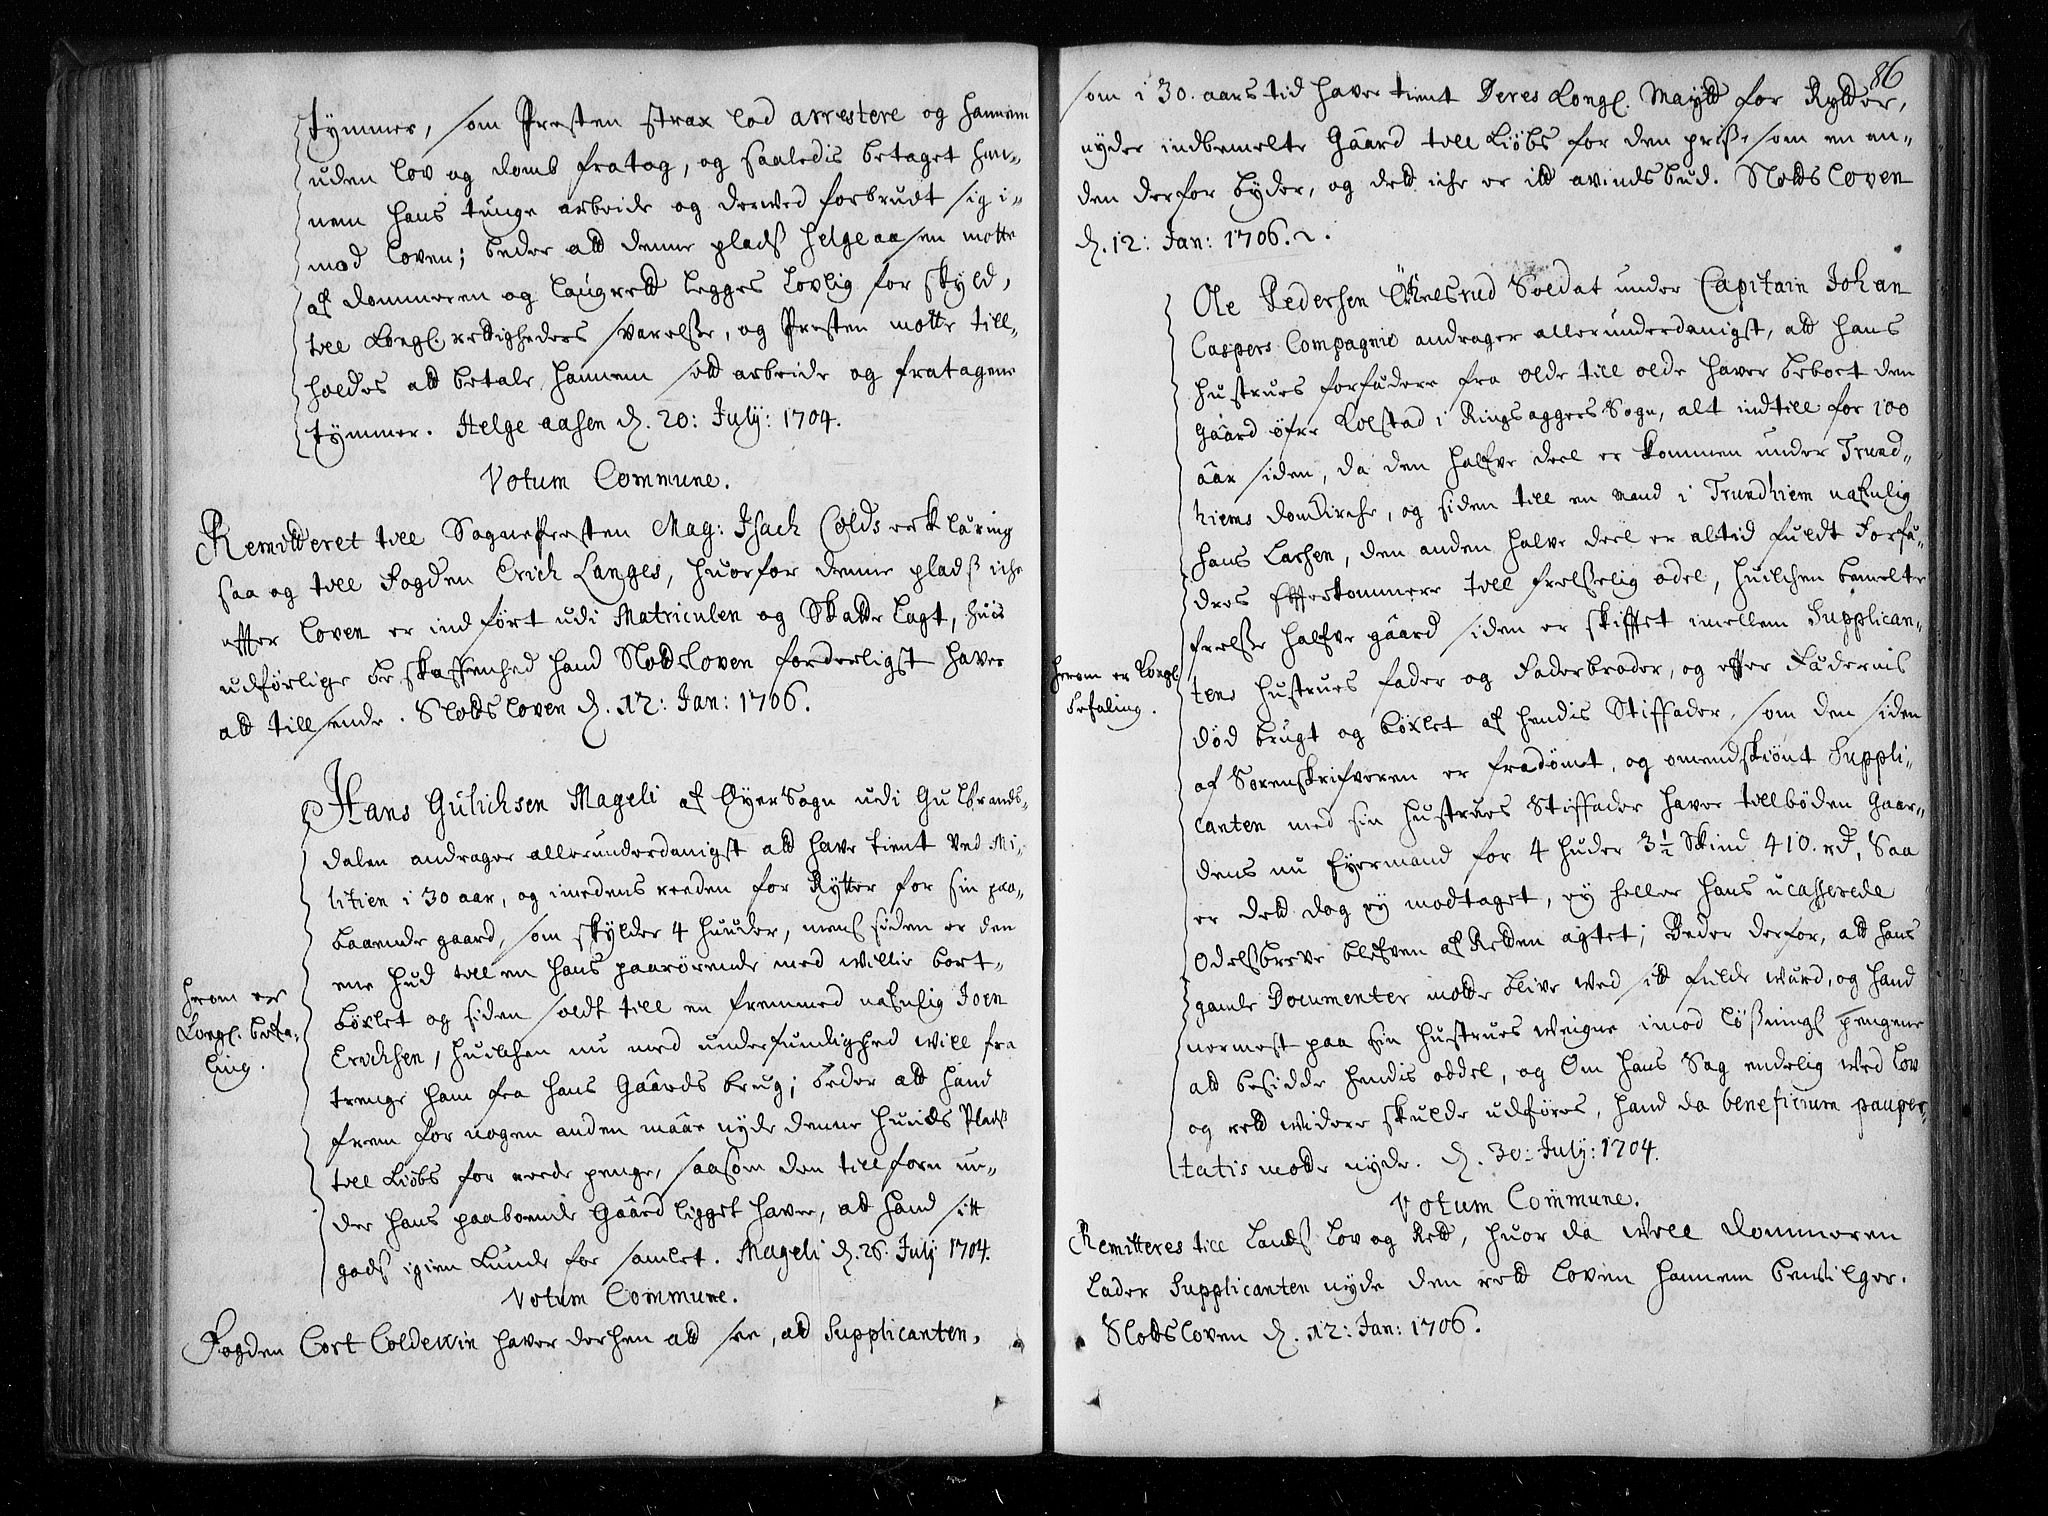 tymmer, som Præsten strax lod arrestere og hannem
uden lov og domb fratog, og saaledis betaget han-
nem hans tunge arbeide og derved forbrudt sig i-
mod loven; beder att denne plads Helgeaasen motte
af dommeren og laugrett legges lovlig for skyld,
till Kongl. rettigheders svarelse, og Præsten motte till-
holdes att betale hannem sitt arbeide og fratagene
tymmer. Helge aasen d. 20: July: 1704.
Votum Commune.
Remitteret till Sognepræsten Mag: Isach Colds erklæring
saa og till Fogden Erich Langes, huorfor denne plads iche
effter loven er indført udi Matriculen og Skatte lagt, huis
udførlige beskaffenhed hand Slotsloven forderligst haver
att tillsende. Slotsloven d. 12: Jan: 1706.
Hans Gulichsen Mageli af Øyer Sogn udi Gulbrands-
dalen andrager allerunderdanigst att have tient ved Mi-
litien i 30 aar, og imedens reeden for Rytter for sin paa-
boende gaard, som skylder 4 huuder, mens siden er den
ene hud till en hans paarørende med willie bort-
böxlet og siden soldt till en fremmed nafnlig Joen
Erichsen, huilchen nu med underfundighed will fra
trenge ham fra hans Gaards brug; beder att hand
frem for nogen anden maae nyde denne huuds Plads
till Kiøbs for reede penge, saasom den tillforn un-
der hans paaboende Gaard ligget haver, att hand sitt
gods igien kunde for samlet. Mageli d. 26. July 1704.
herom er
Kongl. befa-
ling.
Votum Commune.
Fogden Cort Coldewin haver derhen att see, att Supplicanten,
86
som i 30. aars tid haver tient Deres Kongl. Maytt for Rytter,
nyder indbemelte Gaard till Kiøbs for den prise som en an-
den derfor byder, og dett iche er itt avindsbud. Slotsloven
d. 12: Jan: 1706.
Ole Pedersen Økelsrud Soldat under Capitain Johan
Caspers Compagnie andrager allerunderdanigst, att hans
hustrues forfædere fra olde till olde haver beboet den
Gaard øfre Kolstad i Ringsaggers Sogn, alt indtill for 100
aar siden, da den halfve deel er kommen under Trund-
hiems domkirche, og siden till en mand i Trundhiem nafnlig
Hans Larsen, den anden halve deel er altid fuldt Forfæ-
dres Effterkommere till frelselig odel, huilchen bemelte
frelse halfve gaard siden er skifftet imellem Supplican-
tens hustrues fader og Faderbroder, og effter Faderens
død brugt og böxlet af hendis Stiffader, som den siden
af Sorenskrifveren er fradømt, og omendskiønt Suppli-
canten med sin hustrues Stiffader haver tillbøden Gaar-
dens nu Eyermand for 4 huder 3½ Skind 410. rd, Saa
er dett dog ey modtaget, ey heller hans ucasserede
Odelsbreve blefven af Retten agtet; Beder derfor, att hans
gamle Documenter motte blive ved sitt fulde wærd, og hand
nermest paa sin hustrues weigne imod løsnings pengene
att besidde hendis oddel, og Om hans Sag endelig ved lov
og rett widere skulde udføres, hand da beneficium pauper-
tatis motte nyde. d. 30: July: 1704.
herom er Kongl.
befaling.
Votum Commune.
Remitteres till Lands Lov og Rett, huor da well dommeren
lader Supplicanten nyde den rett loven hannem bevilger.
Slotsloven d. 12: Jan: 1706.